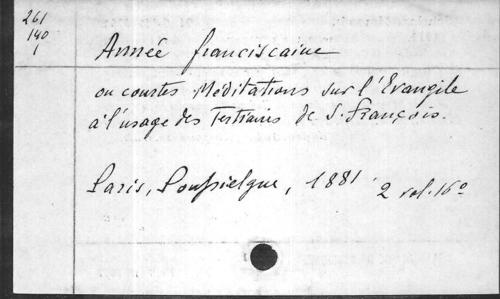 261
140
1
Année franciscaine
ou courtes Méditations sur l'Evangile
à l'usage des Tertiaires de S. François.
Paris, Poussielgue, 1881 2 vol. 16º